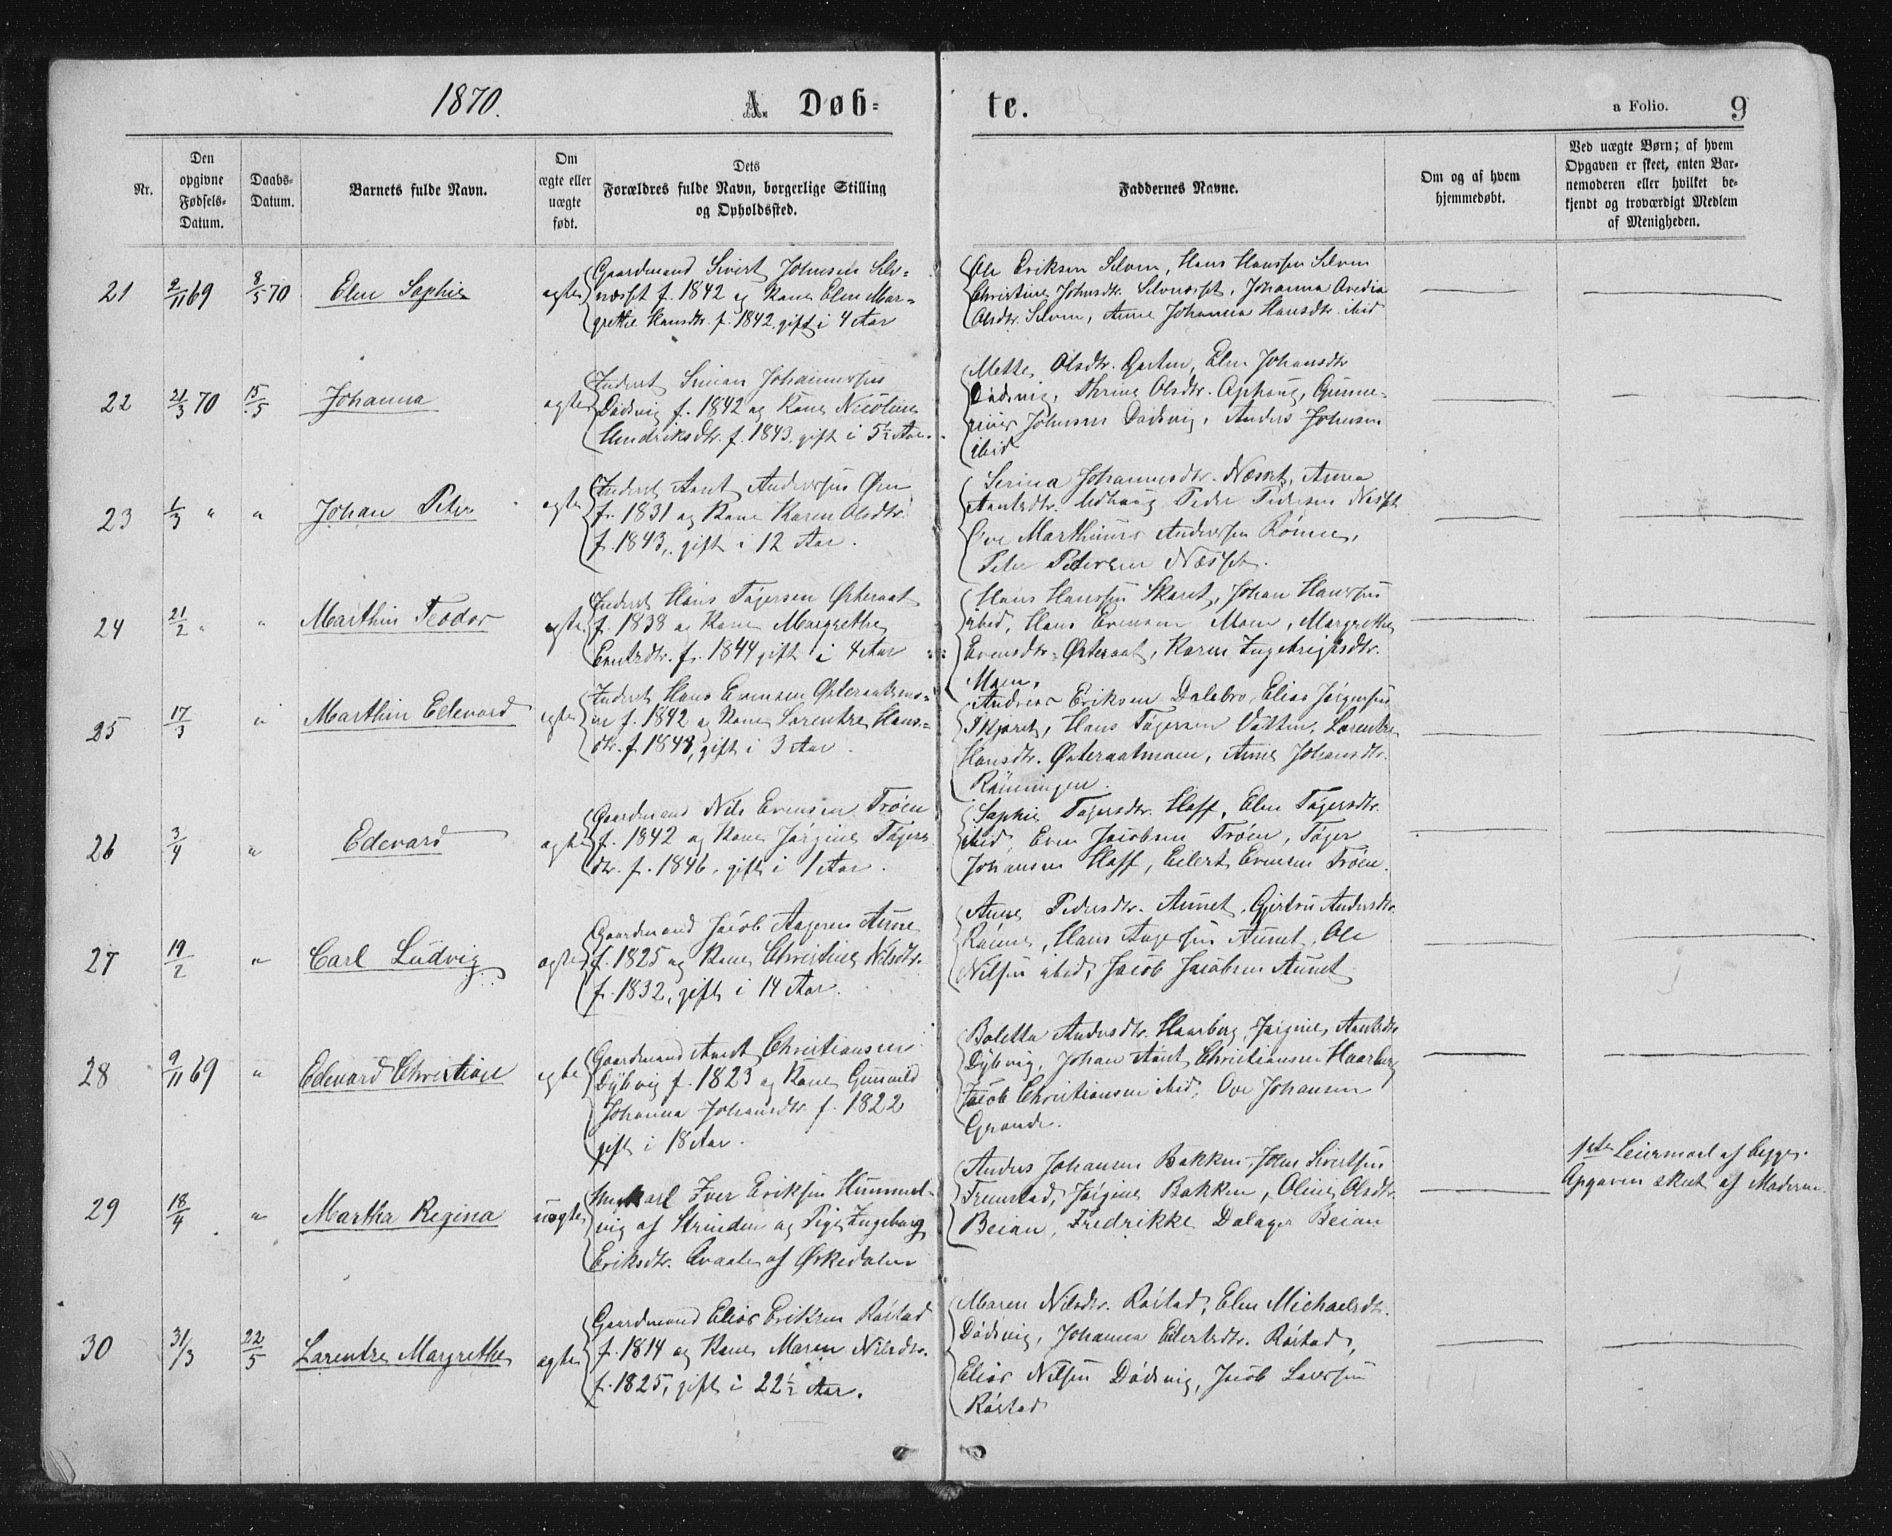 1870.
A. Døb-
te.
a Folio.
9
Nr.
Den opgivne Fødsels-Datum.
Daabs-Datum.
Barnets fulde Navn.
Om ægte eller uægte født.
Dets Forældres fulde Navn, borgerlige Stilling og Opholdssted.
Faddernes Navne.
Om og af hvem hjemmedøbt.
Ved uægte Børn; af hvem Opgaven er skeet, enten Barnemoderen eller hvilket bekjendt og troværdigt Medlem af Menigheden.
21
9/11 69
8/5 70
Elen Sophie
ægte
Gaardmand Sivert Johnsen Selv-
næsset f. 1842 og Kone Elen Mar-
grethe Hansdtr. f. 1842. gift i 4 Aar
Ole Eriksen Selven, Hans Hanssen Selven
Christine Johnsdtr. Selvnæsset, Johanna Avedia
Olsdtr. Selven, Anne Johanna Hansdtr. ibid
22
21/3 70
15/5
Johanna
ægte
Inderst Simon Johannessen
Dødsvig f. 1842 og Kone Nicoline
Hendriksdtr. f. 1843. gift i 5½ Aar.
Mette Olsdtr. Garten, Elen Johansdtr
Dødsvig, Olsdtr. Ophaug, Gunne-
rius Johnsen Dødsvig, Anders Johnsen
ibid
23
1/3 "
"
Johan Peter
ægte
Inderst Arnt Anderssen Øren
f. 1831 og Kone Karen Olsdtr.
f. 1843, gift i 12 Aar.
Serina Johannesdtr. Næsset, Anna
Arntsdtr. Udhaug, Peder Pedersen Næsset
Ove Marthinus Anderssen Rønne,
Peter Petersen Næsset.
24
21/2 "
"
Marthin Teodor
ægte
Inderst Hans Tøgersen Østeraat
f. 1838 og Kone Margrethe
Evensdtr. f. 1844 gift i 4 Aar
Hans Hanssen Skaret, Johan Hanssen
ibid, Hans Evensen Moen, Margrethe
Evensdtr. Østeraat, Karen Ingebrigtsdtr.
Moen.
25
17/3
"
Marthin Edevard
ægte
Inderst Hans Evensen Østeraatsmo-
en f. 1842 og Kone Lorentze Hans-
dtr. f. 1848, gift i 3 Aar.
Andreas Eriksen Dalebro, Elias Jørgensen
Hans Tøgersen Vatten, Lorentze
Hansdtr. Østeraatmoen, Anne Johansdtr.
Rønningen.
26
3/4
"
Edevard
ægte
Gaardmand Nils Evensen Trøen
f. 1842 og Kone Jørgine Tøgers
dtr. f. 1846. gift i 1 Aar.
Sophie Tøgersdtr. Hoff, Elen Tøgersdtr.
ibid, Even Jacobsen Trøen, Tøger
Johansen Hoff, Eilert Evensen Trøen.
27
19/2
"
Carl Ludvig
ægte
Gaardmand Jacob Aagesen Aune
f. 1825 og Kone Christine Nilsdtr.
f. 1832, gift i 14 Aar.
Anne Pedersdtr. Aunet, Gjertru Andersdtr.
Rønne, Hans Aagessen Aunet, Ole
Nilssen ibid, Jacob Jacobsen Aunet
28
9/11 69
"
Edevard Christian
ægte
Gaardmand Arnt Christiansen
Dybvig f. 1823 og Kone Gunnild
Johanna Johansdtr. f. 1822
gift i 18 Aar.
Boletta Andersdtr. Haarberg, Jørgine Arntsdtr.
Dybvig, Johan Arnt Christiansen Haarberg
Jacob Christiansen ibid, Ove Johansen
Grande.
29
18/4
"
Martha Regina
uægte
Ungkarl Iver Eriksen Hummel-
vig af Strinden og Pige Ingeborg
Eriksdtr. Qvaale af Ørkedalen
Anders Johansen Bakken, John Sivertsen
Fremstad, Jørgine Bakken, Oline Olsdtr.
Beian, Fredrikke Dalager Beian
1ste Leiermaal af begge.
Opgaven skeet af Moderen.
30
31/3
22/5
Lorentze Margrethe
ægte
Gaardmand Elias Eriksen Røstad
f. 1814 og Kone Maren Nilsdtr.
f. 1825, gift i 22½ Aar.
Maren Nilsdtr. Røstad, Elen Michaelsdtr.
Dødsvig, Johanna Eilertsdtr. Røstad,
Elias Nilssen Dødsvig, Jacob Larssen
Røstad